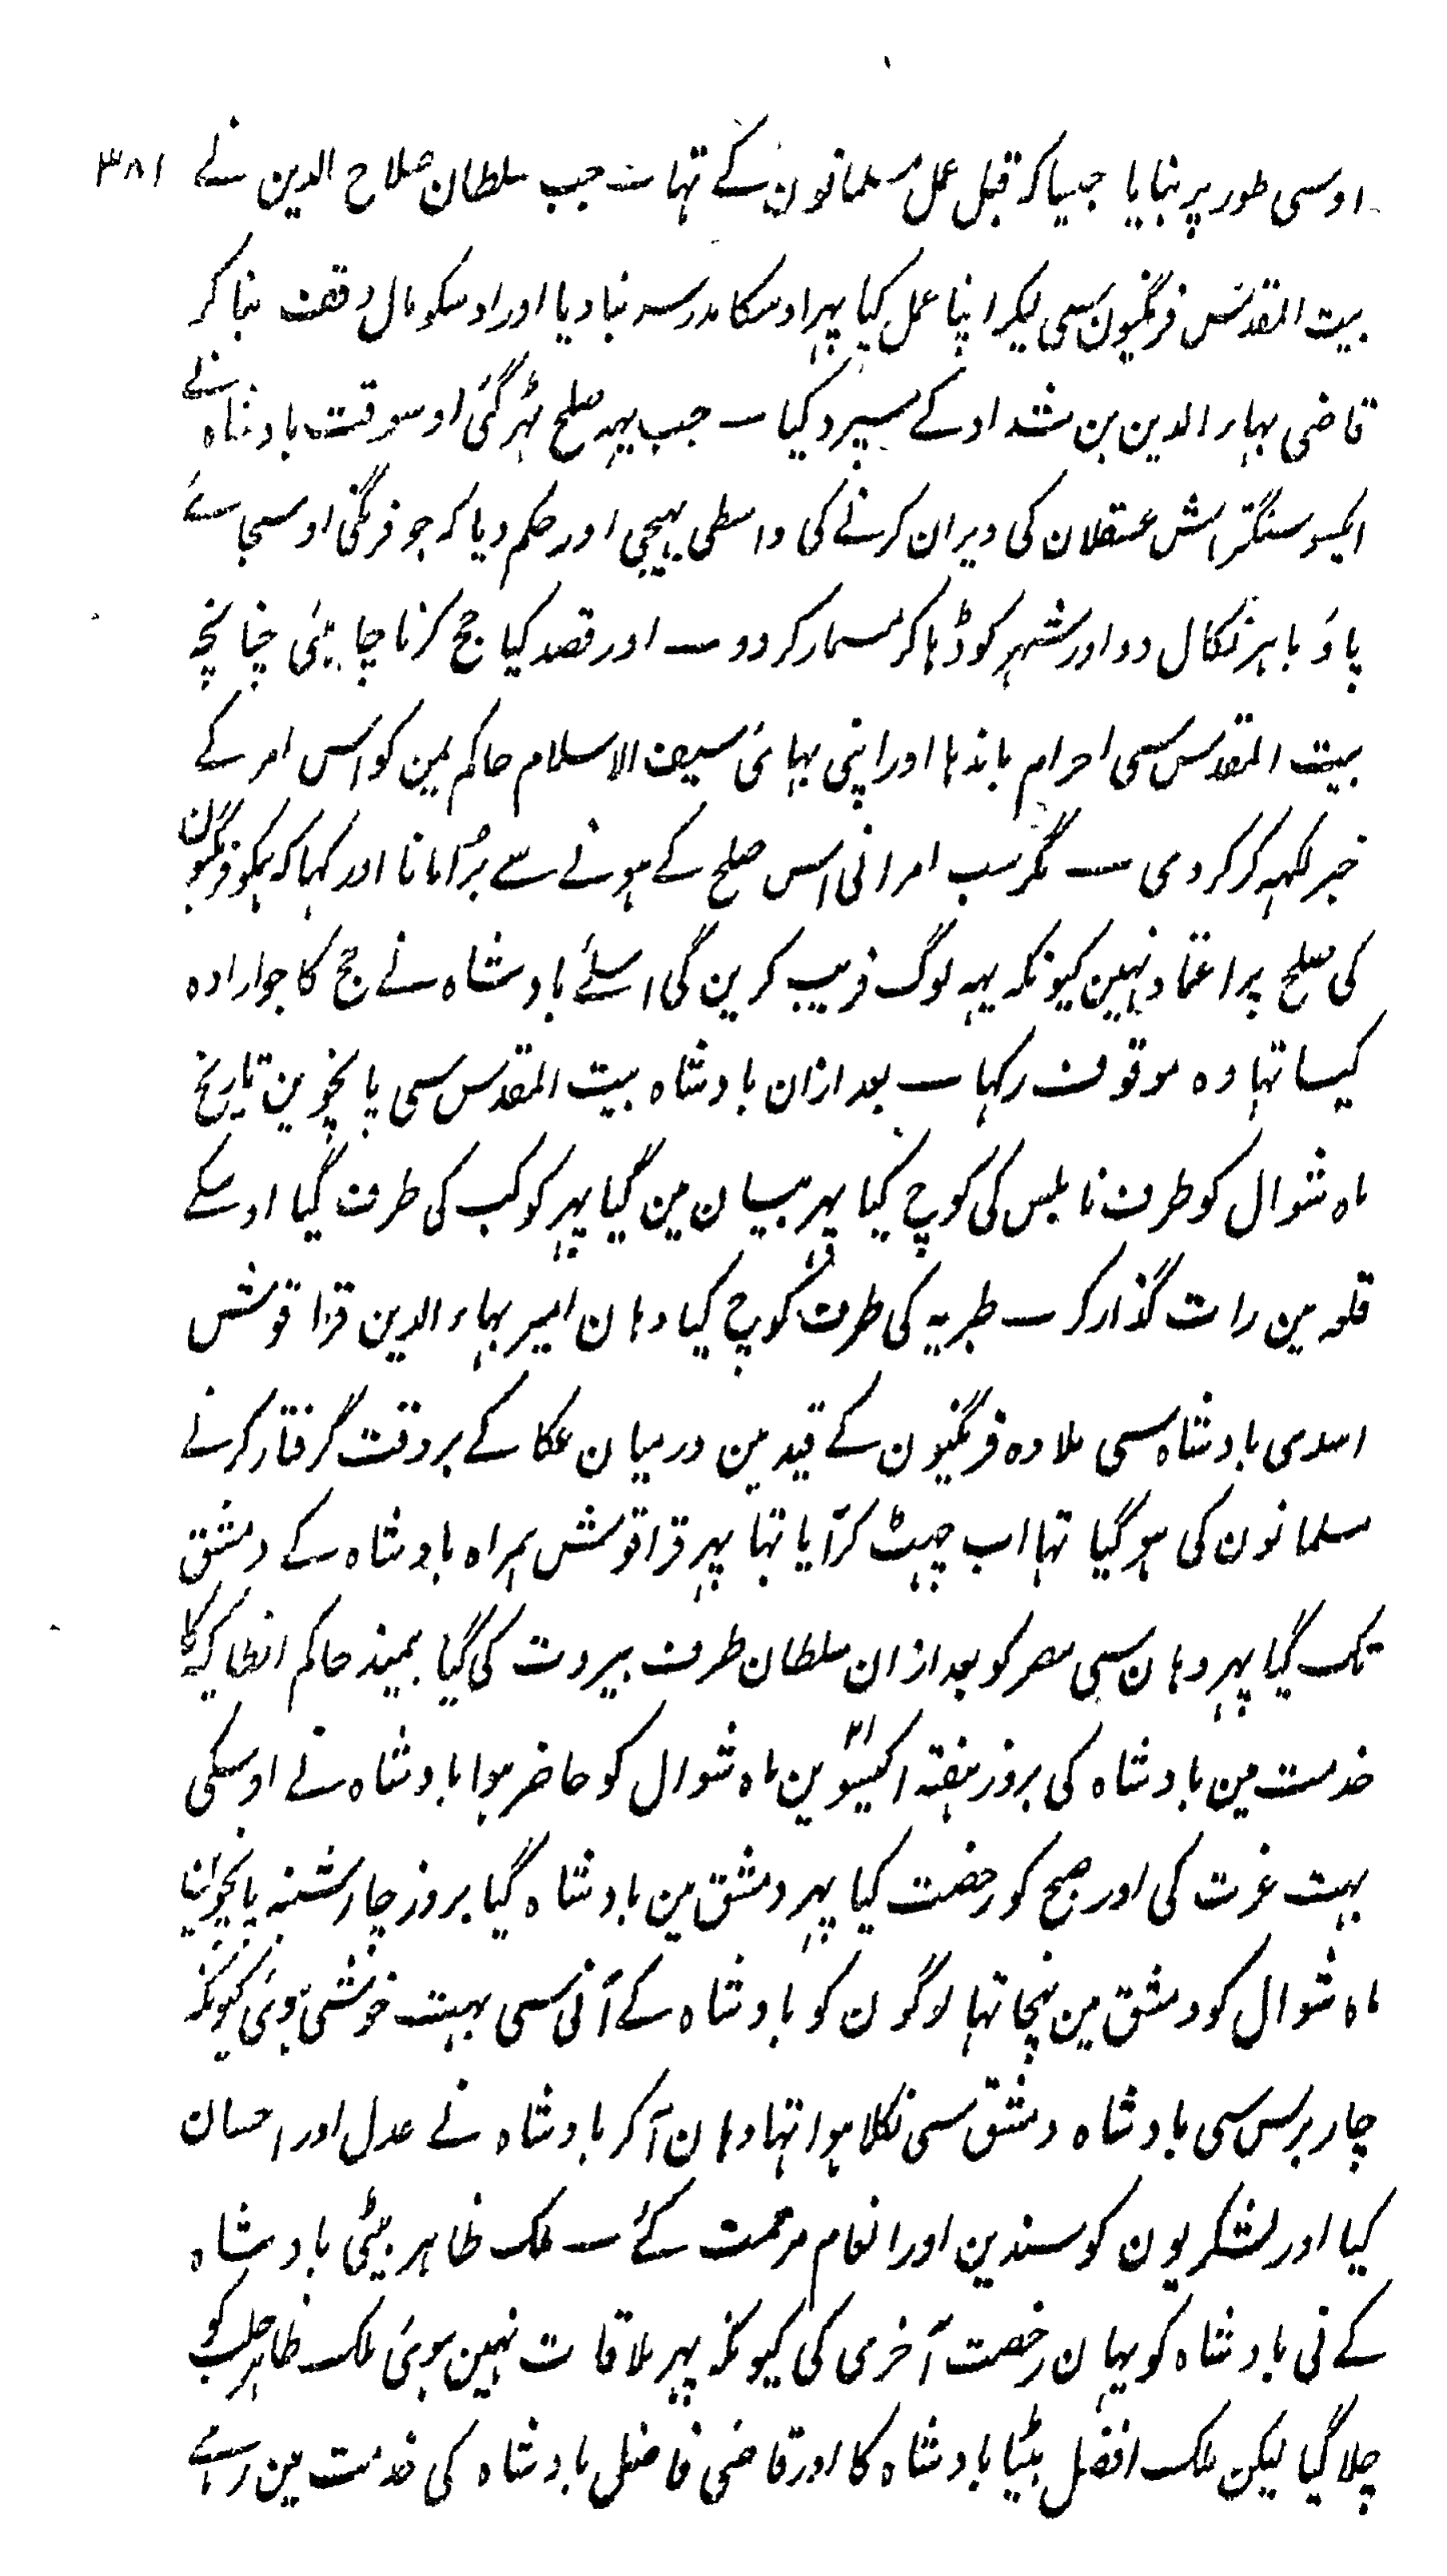 ۳۸۱
اوسی طور پر بنایا جیسا کہ قبل عمل مسلمانون کے تہا ۔ جب سلطان صلاح الدین نے
بیت المقدس فرنگیون سی لیکر اپنا عمل کیا پہر اوسکا مدرسہ بنادیا اور اوسکو مال وقف بنا کر
قاضی بہاء الدین بن شداد کے سپرد کیا ۔ جب یہہ صلح ٹہر گئی اوسوقت بادشاہ نے
ایکسو سنگتراش عسقلان کی ویران کرنے کی واسطی بہیجی اور حکم دیا کہ جو فرنگی اوسجا سے
پاؤ باہر نکال دو اور شہر کو ڈہا کر مسمار کر دو ۔ اور قصد کیا حج کرنا چاہیئی چنانچہ
بیت المقدس سی احرام باندہا اور اپنی بہائی سیف الاسلام حاکم یمن کو اس امر کے
خبر لکہہ کر کر دی ۔ مگر سب امرا نی اس صلح کے ہونے سے بُرا مانا اور کہا کہ ہمکو فرنگیون
کی صلح پر اعتماد نہین کیونکہ یہہ لوگ فریب کرین گی اسلئے بادشاہ نے حج کا جو ارادہ
کیسا تہا وہ موقوف رکہا ۔ بعد ازان بادشاہ بیت المقدس سی پانچوین تاریخ
ماہ شوال کو طرف نابلس کی کوچ کیا پہر بیسان مین گیا پہر کوکب کی طرف گیا اوسکے
قلعہ مین رات گذار کر ۔ طبریہ کی طرف کوچ کیا وہان امیر بہاء الدین قراقوش
اسدی بادشاہ سی ملا وہ فرنگیون کے قید مین درمیان عکا کے بروقت گرفتار کرنے
مسلمانون کی ہو گیا تہا اب چہٹ کر آیا تہا پہر قراقوش ہمراہ بادشاہ کے دمشق
تک گیا پہر وہان سی مصر کو بعد ازان سلطان طرف بیروت کی گیا بیمند حاکم انطاکیہ کا
خدمت مین بادشاہ کی بروز ہفتہ اکیسوین ۲۱ ماہ شوال کو حاضر ہوا بادشاہ نے اوسکی
بہت عزت کی اور صبح کو رخصت کیا پہر دمشق مین بادشاہ گیا بروز چارشنبہ پانچوین
ماہ شوال کو دمشق مین پہنچا تہا لوگون کو بادشاہ کے آنی سی بہت خوشی ہوئی کیونکہ
چار برس سی بادشاہ دمشق سی نکلا ہوا تہا وہان آکر بادشاہ نے عدل اور احسان
کیا اور لشکریون کو سندین اور انعام مرحمت کئے ۔ ملک ظاہر بیٹی بادشاہ
کے نی بادشاہ کو یہان رخصت آخری کی کیونکہ پہر ملاقات نہین ہوئی ملک ظاہر حلب کو
چلا گیا لیکن ملک افضل بیٹا بادشاہ کا اور قاضی فاضل بادشاہ کی خدمت مین رہے